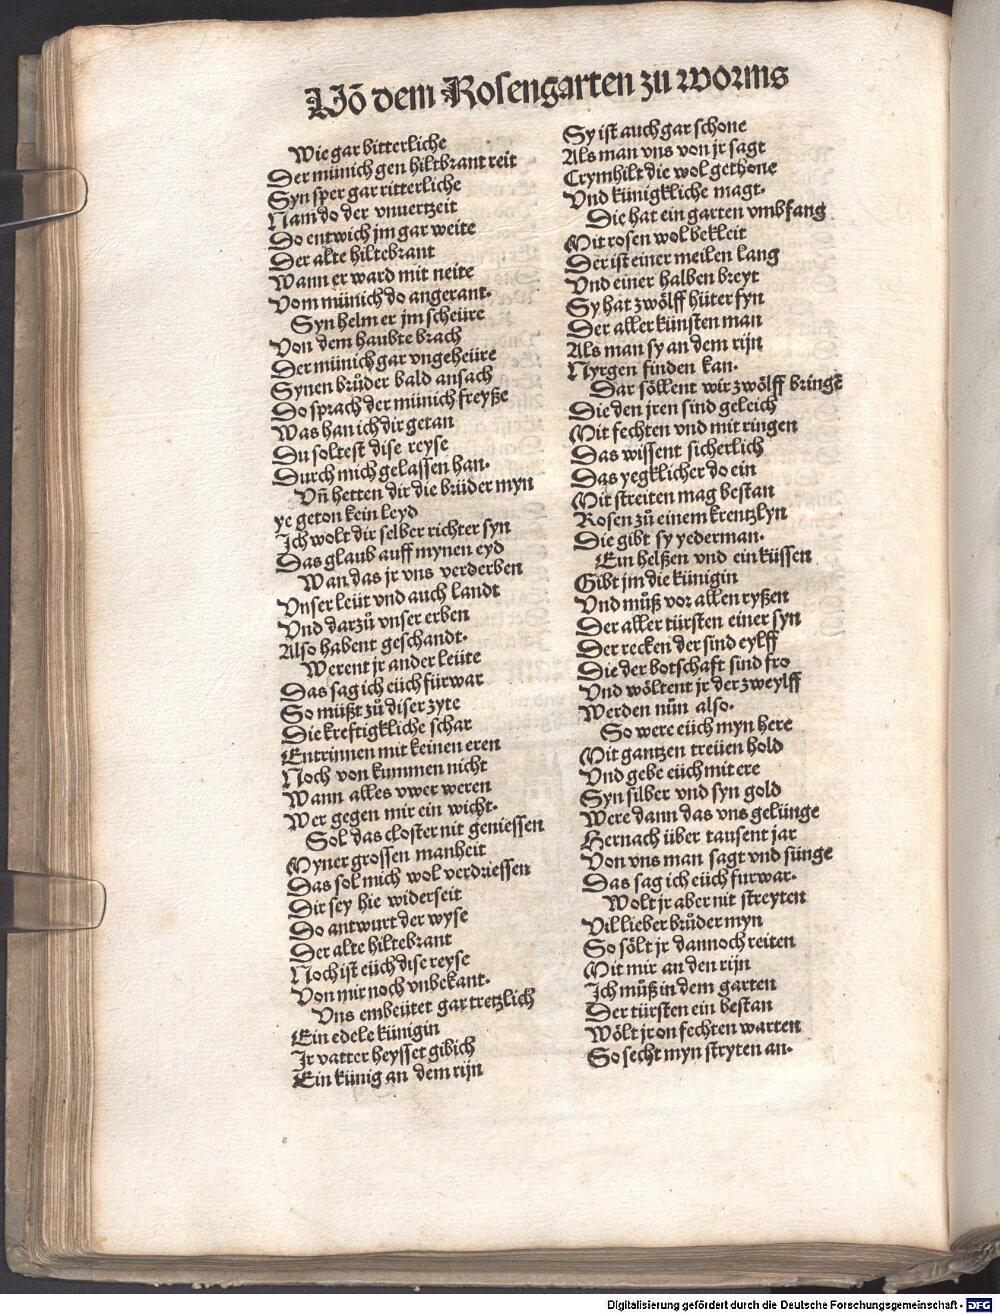 Vō dem Rosengarten zu worms
Wie gar bitterliche
Der münich gen hiltbrant reit
Syn sper gar ritterliche
Nam do der vnuertzeit
Do entwich jm gar weite
Der alte hiltebrant
Wann er ward mit neite
Vom münich do angerant.
Syn helm er jm scheüre
Von dem haubte brach
Der münich gar vngeheüre
Synen brůder bald ansach
Do sprach der münich freyße
Was han ich dir getan
Du soltest dise reyse
Durch mich gelassen han.
Vñ hetten dir die brüder myn
ye geton kein leyd
Ich wolt dir selber richter syn
Das glaub auff mynen eyd
Wan das jr vns verderben
Vnser leüt vnd auch landt
Vnd darzů vnser erben
Also habent geschandt.
Werent jr ander leüte
Das sag ich eüch fürwar
So müßt zů diser zyte
Die kreftigkliche schar
Entrinnen mit keinen eren
Noch von kummen nicht
Wann alles vwer weren
Wer gegen mir ein wicht.
Sol das closter nit geniessen
Myner grossen manheit
Das sol mich wol verdriessen
Dir sey hie widerseit
Do antwurt der wyse
Der alte hiltebrant
Noch ist eüch dise reyse
Von mir noch vnbekant.
Vns embeütet gar tretzlich
Ein edele künigin
Ir vatter heysset gibich
Ein künig an dem rijn
Sy ist auch gar schone
Als man vns von jr sagt
Crymhilt die wol gethone
Vnd künigkliche magt.
Die hat ein garten vmbfang
Mit rosen wol bekleit
Der ist einer meilen lang
Vnd einer halben breyt
Sy hat zwölff hüter fyn
Der aller künsten man
Als man sy an dem rijn
Nyrgen finden kan.
Dar söllent wir zwölff bringē
Die den jren sind geleich
Mit fechten vnd mit ringen
Das wissent sicherlich
Das yegklicher do ein
Mit streiten mag bestan
Rosen zů einem krentzlyn
Die gibt sy yederman.
Ein helßen vnd ein küssen
Gibt jm die künigin
Vnd můß vor allen ryßen
Der aller türsten einer syn
Der recken der sind eylff
Die der botschaft sind fro
Vnd wöltent jr der zweylff
Werden nůn also.
So were eüch myn here
Mit gantzen treüen hold
Vnd gebe eüch mit ere
Syn silber vnd syn gold
Were dann das vns gelünge
Hernach über tausent jar
Von vns man sagt vnd sünge
Das sag ich eüch furwar.
Wolt jr aber nit streyten
Vil lieber brůder myn
So sölt jr dannoch reiten
Mit mir an den rijn
Ich můß in dem garten
Der türsten ein bestan
Wölt jr on fechten warten
So secht myn stryten an.
Digitalisierung gefördert durch die Deutsche Forschungsgemeinschaft - DFG